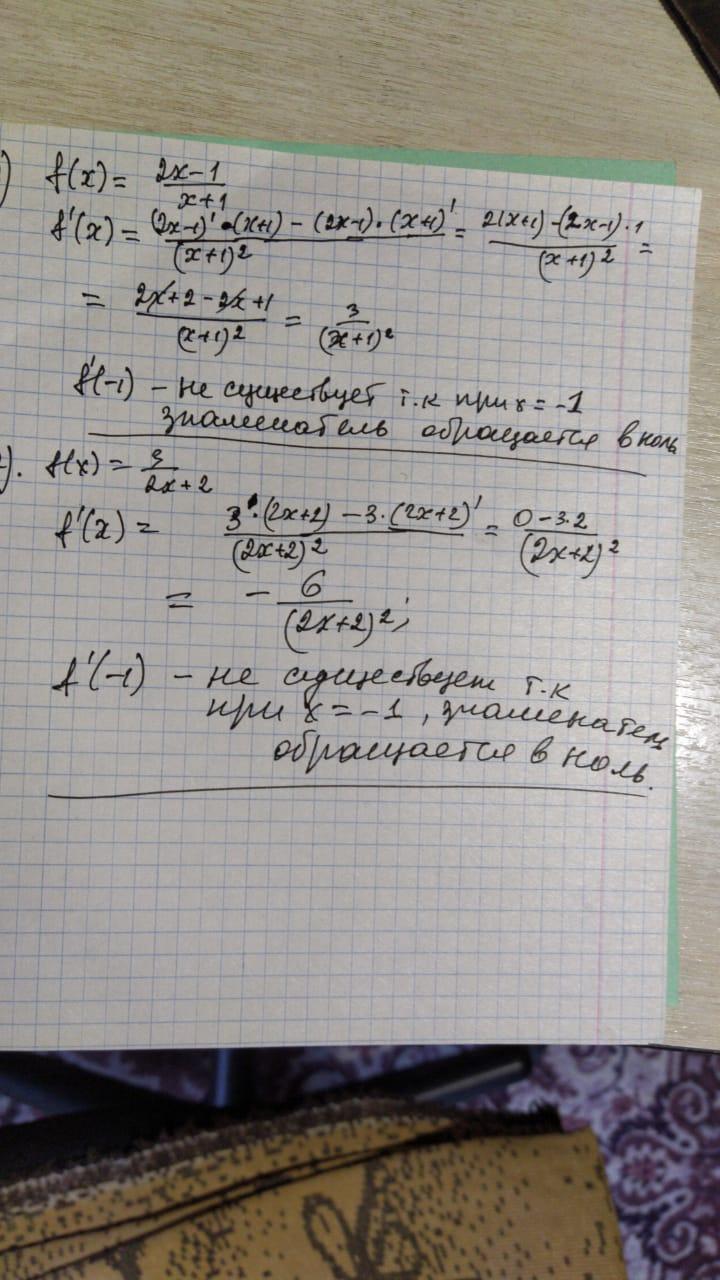 ) f(x) = (2x-1)/(x+1)
f'(x) = ((2x-1)'·(x+1) - (2x-1)·(x+1)')/(x+1)² = (2(x+1) - (2x-1)·1)/(x+1)² =
= (2x+2-2x+1)/(x+1)² = 3/(x+1)²
f'(-1) - не существует т.к при x = -1
знаменатель обращается в ноль
). f(x) = 3/(2x+2)
f'(x) = (3'·(2x+2) - 3·(2x+2)')/(2x+2)² = (0-3·2)/(2x+2)²
= - 6/(2x+2)²;
f'(-1) - не существует т.к
при x = -1, знаменатель
обращается в ноль.